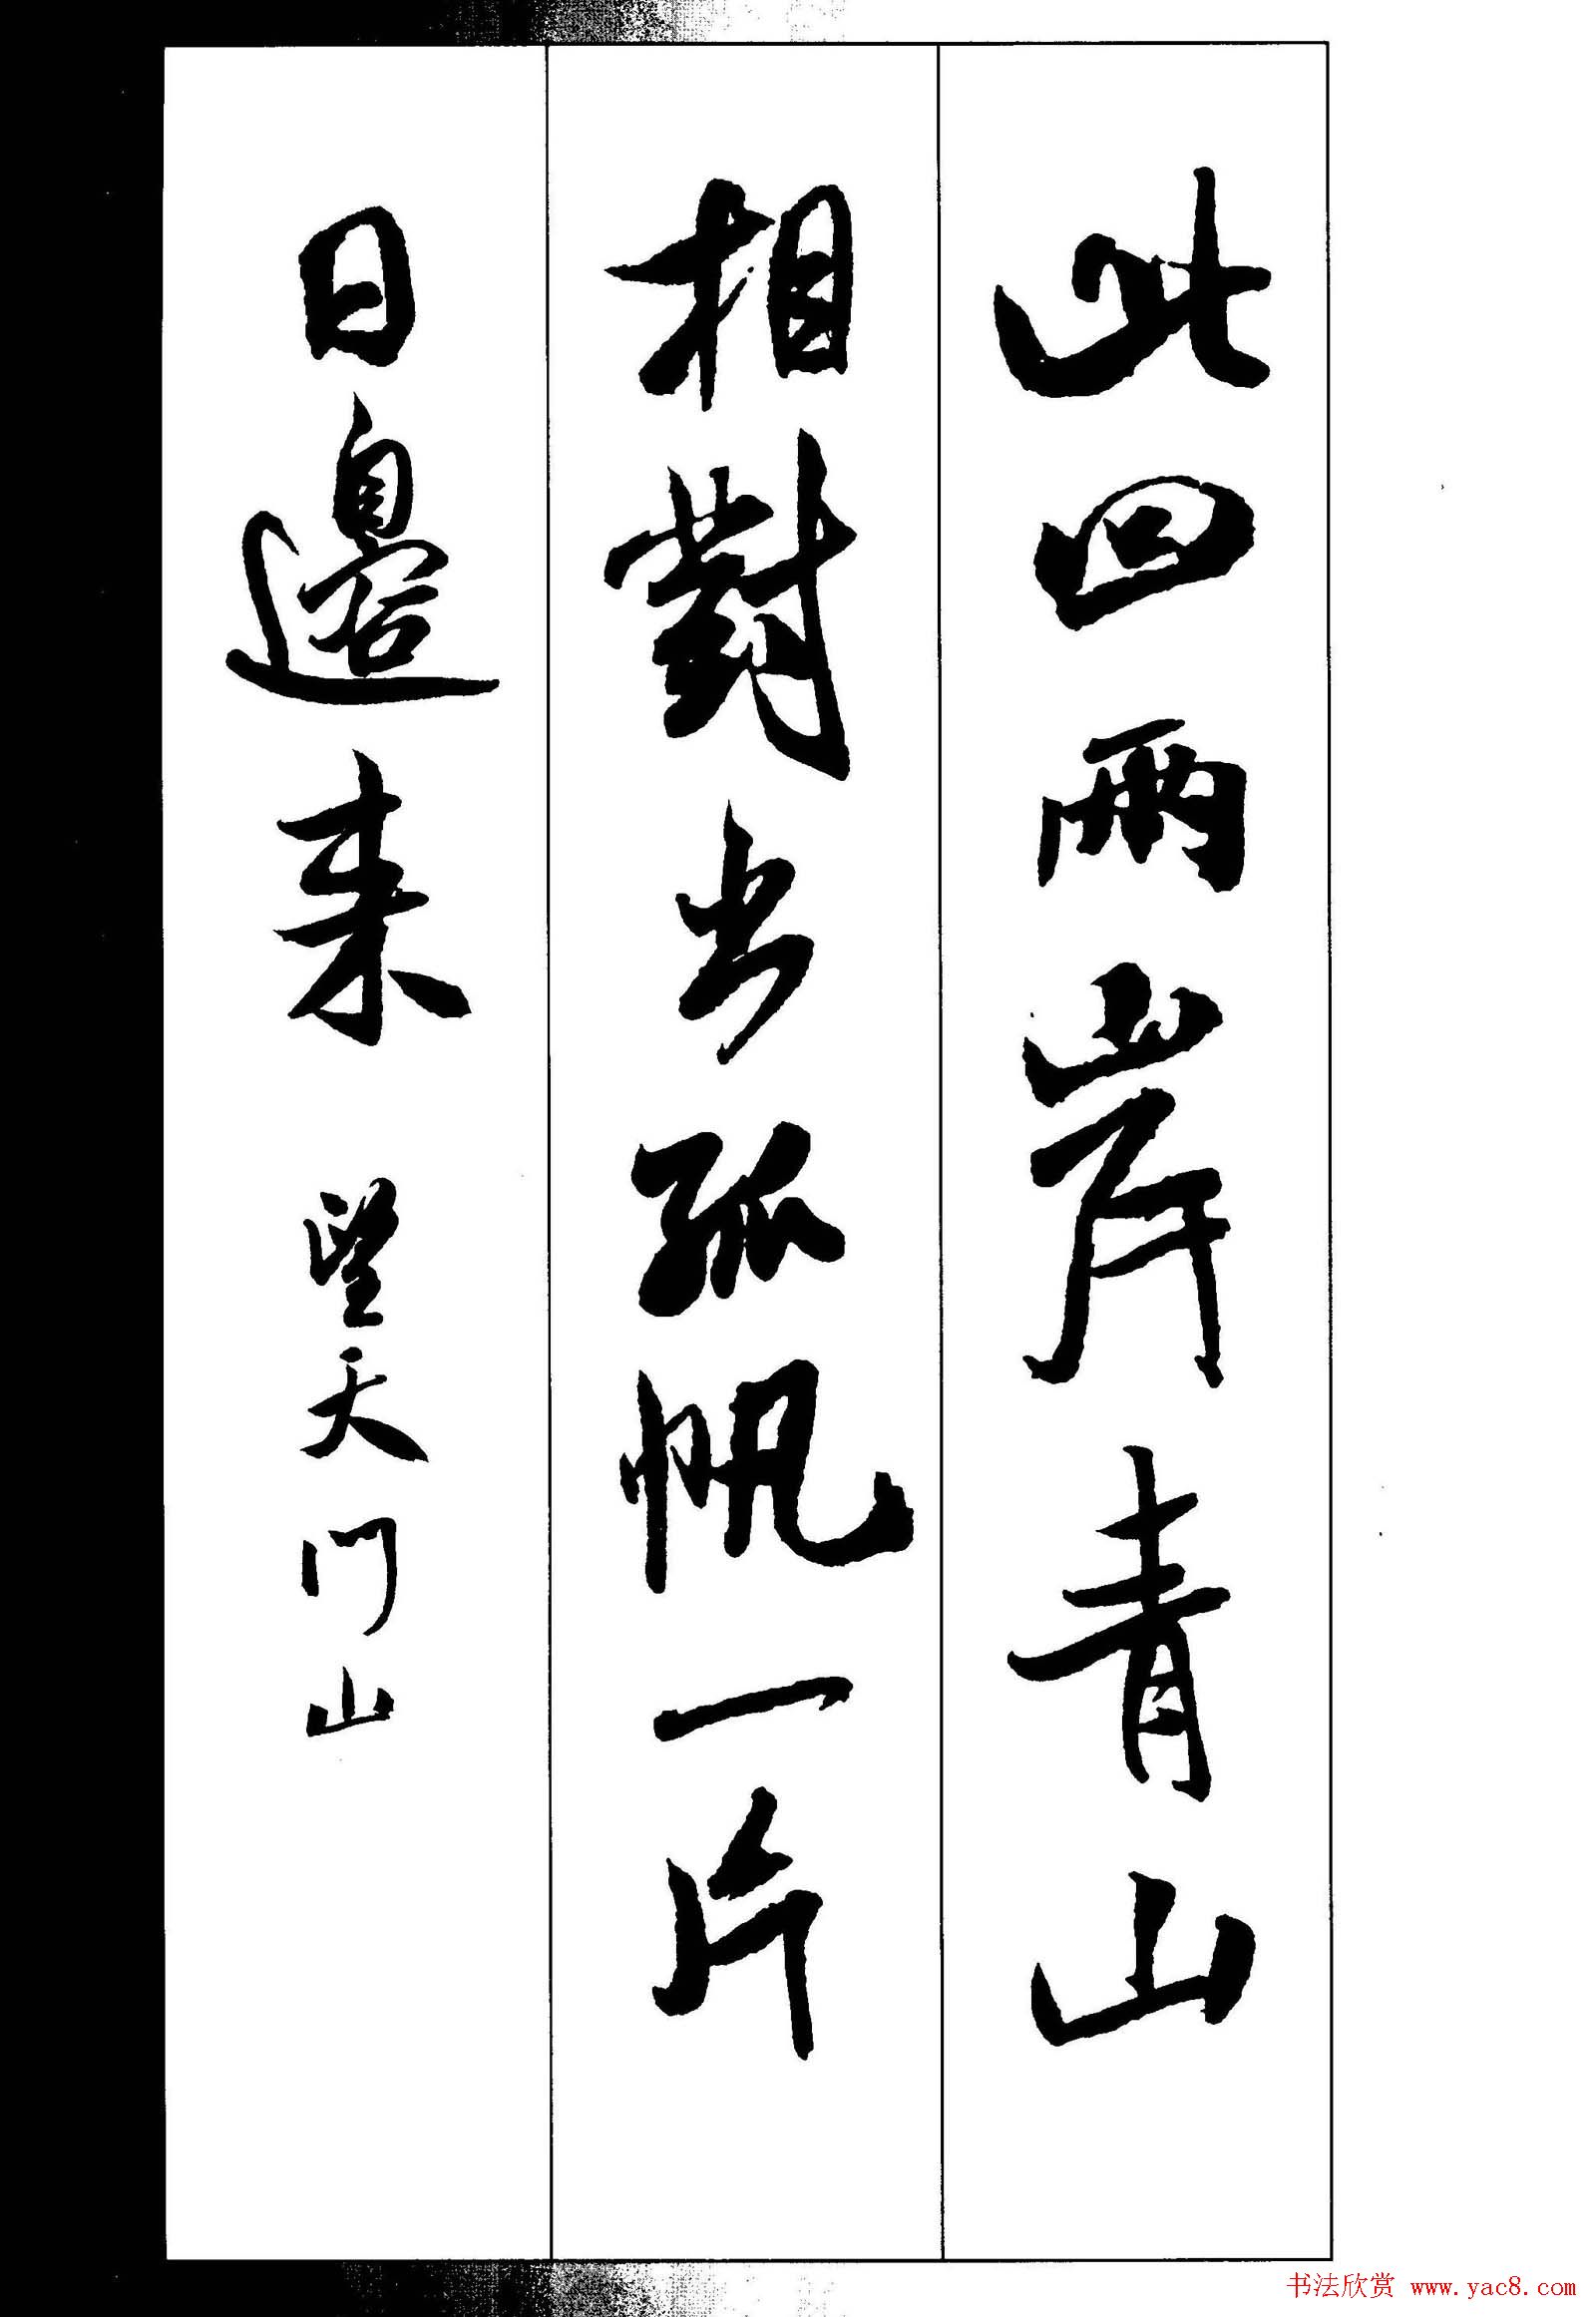 此回兩岸青山
相對出孤帆一片
日邊来 望天门山
书法欣赏 www.yac8.com